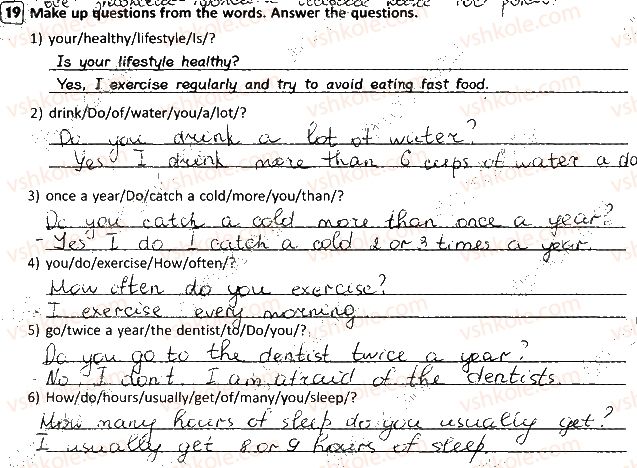 19 Make up questions from the words. Answer the questions.
1) your/healthy/lifestyle/Is/?
Is your lifestyle healthy?
Yes, I exercise regularly and try to avoid eating fast food.
2) drink/Do/of/water/you/a/lot/?
Do you drink a lot of water?
Yes I drink more than 6 cups of water a da
3) once a year/Do/catch a cold/more/you/than/?
Do you catch a cold more than once a year?
- Yes I do. I catch a cold 2 or 3 times a year.
4) you/do/exercise/How/often/?
How often do you exercise?
- I exercise every morning
5) go/twice a year/the dentist/to/Do/you/?
Do you go to the dentist twice a year?
- No, I don't. I am afraid of the dentists.
6) How/do/hours/usually/get/of/many/you/sleep/?
How many hours of sleep do you usually get?
I usually get 8 or 9 hours of sleep.